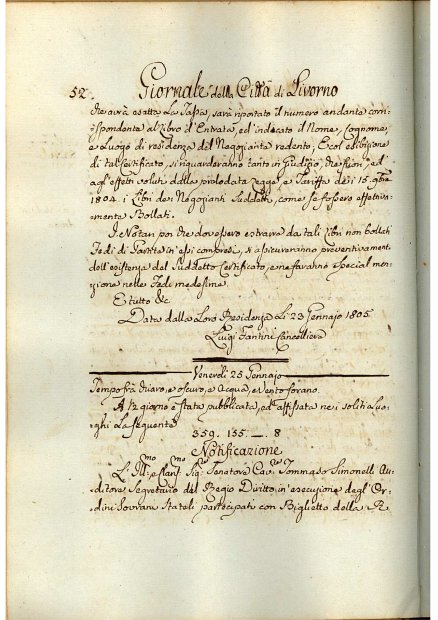 52. Giornale della Città di Livorno
che avrà esatta La Tassa, sarà riportato il numero andante corri-
spondente al Libro d'Entrata, ed indicato il Nome, Cognome,
e Luogo di residenza del Negoziante redento; E coll'esibizione
di tal Certificato, si riguarderanno tanto in Giudizio, che fuori, ed
agl'effetti voluti dalla prelodata Legge, e Tariffa de i 15. 9bre
1804. i Libri dei Negozianti Suddetti, come se fossero effettiva-
mente Bollati.
I Notari poi che dovessero estrarre da tali Libri non bollati
Fedi di Partite in essi compresi, si assicureranno preventivament
dell'esistenza del Suddetto Certificato, e ne faranno special men-
zione nelle Fedi medesime.
E tutto &c.
Data dalla Loro Residenza Li 23 Gennajo 1805
Luigi Fantini Cancelliere
Venerdì 25 Gennajo
Tempo frà chiaro, e oscuro, e Acqua, e Vento forano.
A 12 giorno è stata pubblicata, ed affissata nei soliti Luo-
ghi La seguente
359. 135. _ 8
Notificazione
L'Ill:mo e Clar:mo Sig:re Senatore Cav:re Tommaso Simonelli Au-
ditore Segretario del Regio Diritto in esecuzione degl'Or-
dini Sovrani Statili partecipati con Biglietto della R.